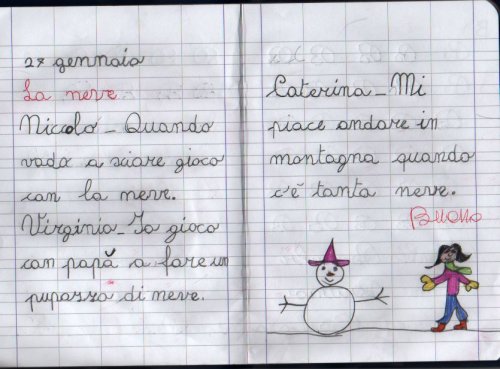 27 gennaio
La neve
Nicolò_Quando
vado a sciare gioco
con la neve.
Virginia_Io gioco
con papà a fare un
pupazzo di neve.
Caterina_Mi
piace andare in
montagna quando
c'è tanta neve.
Buono